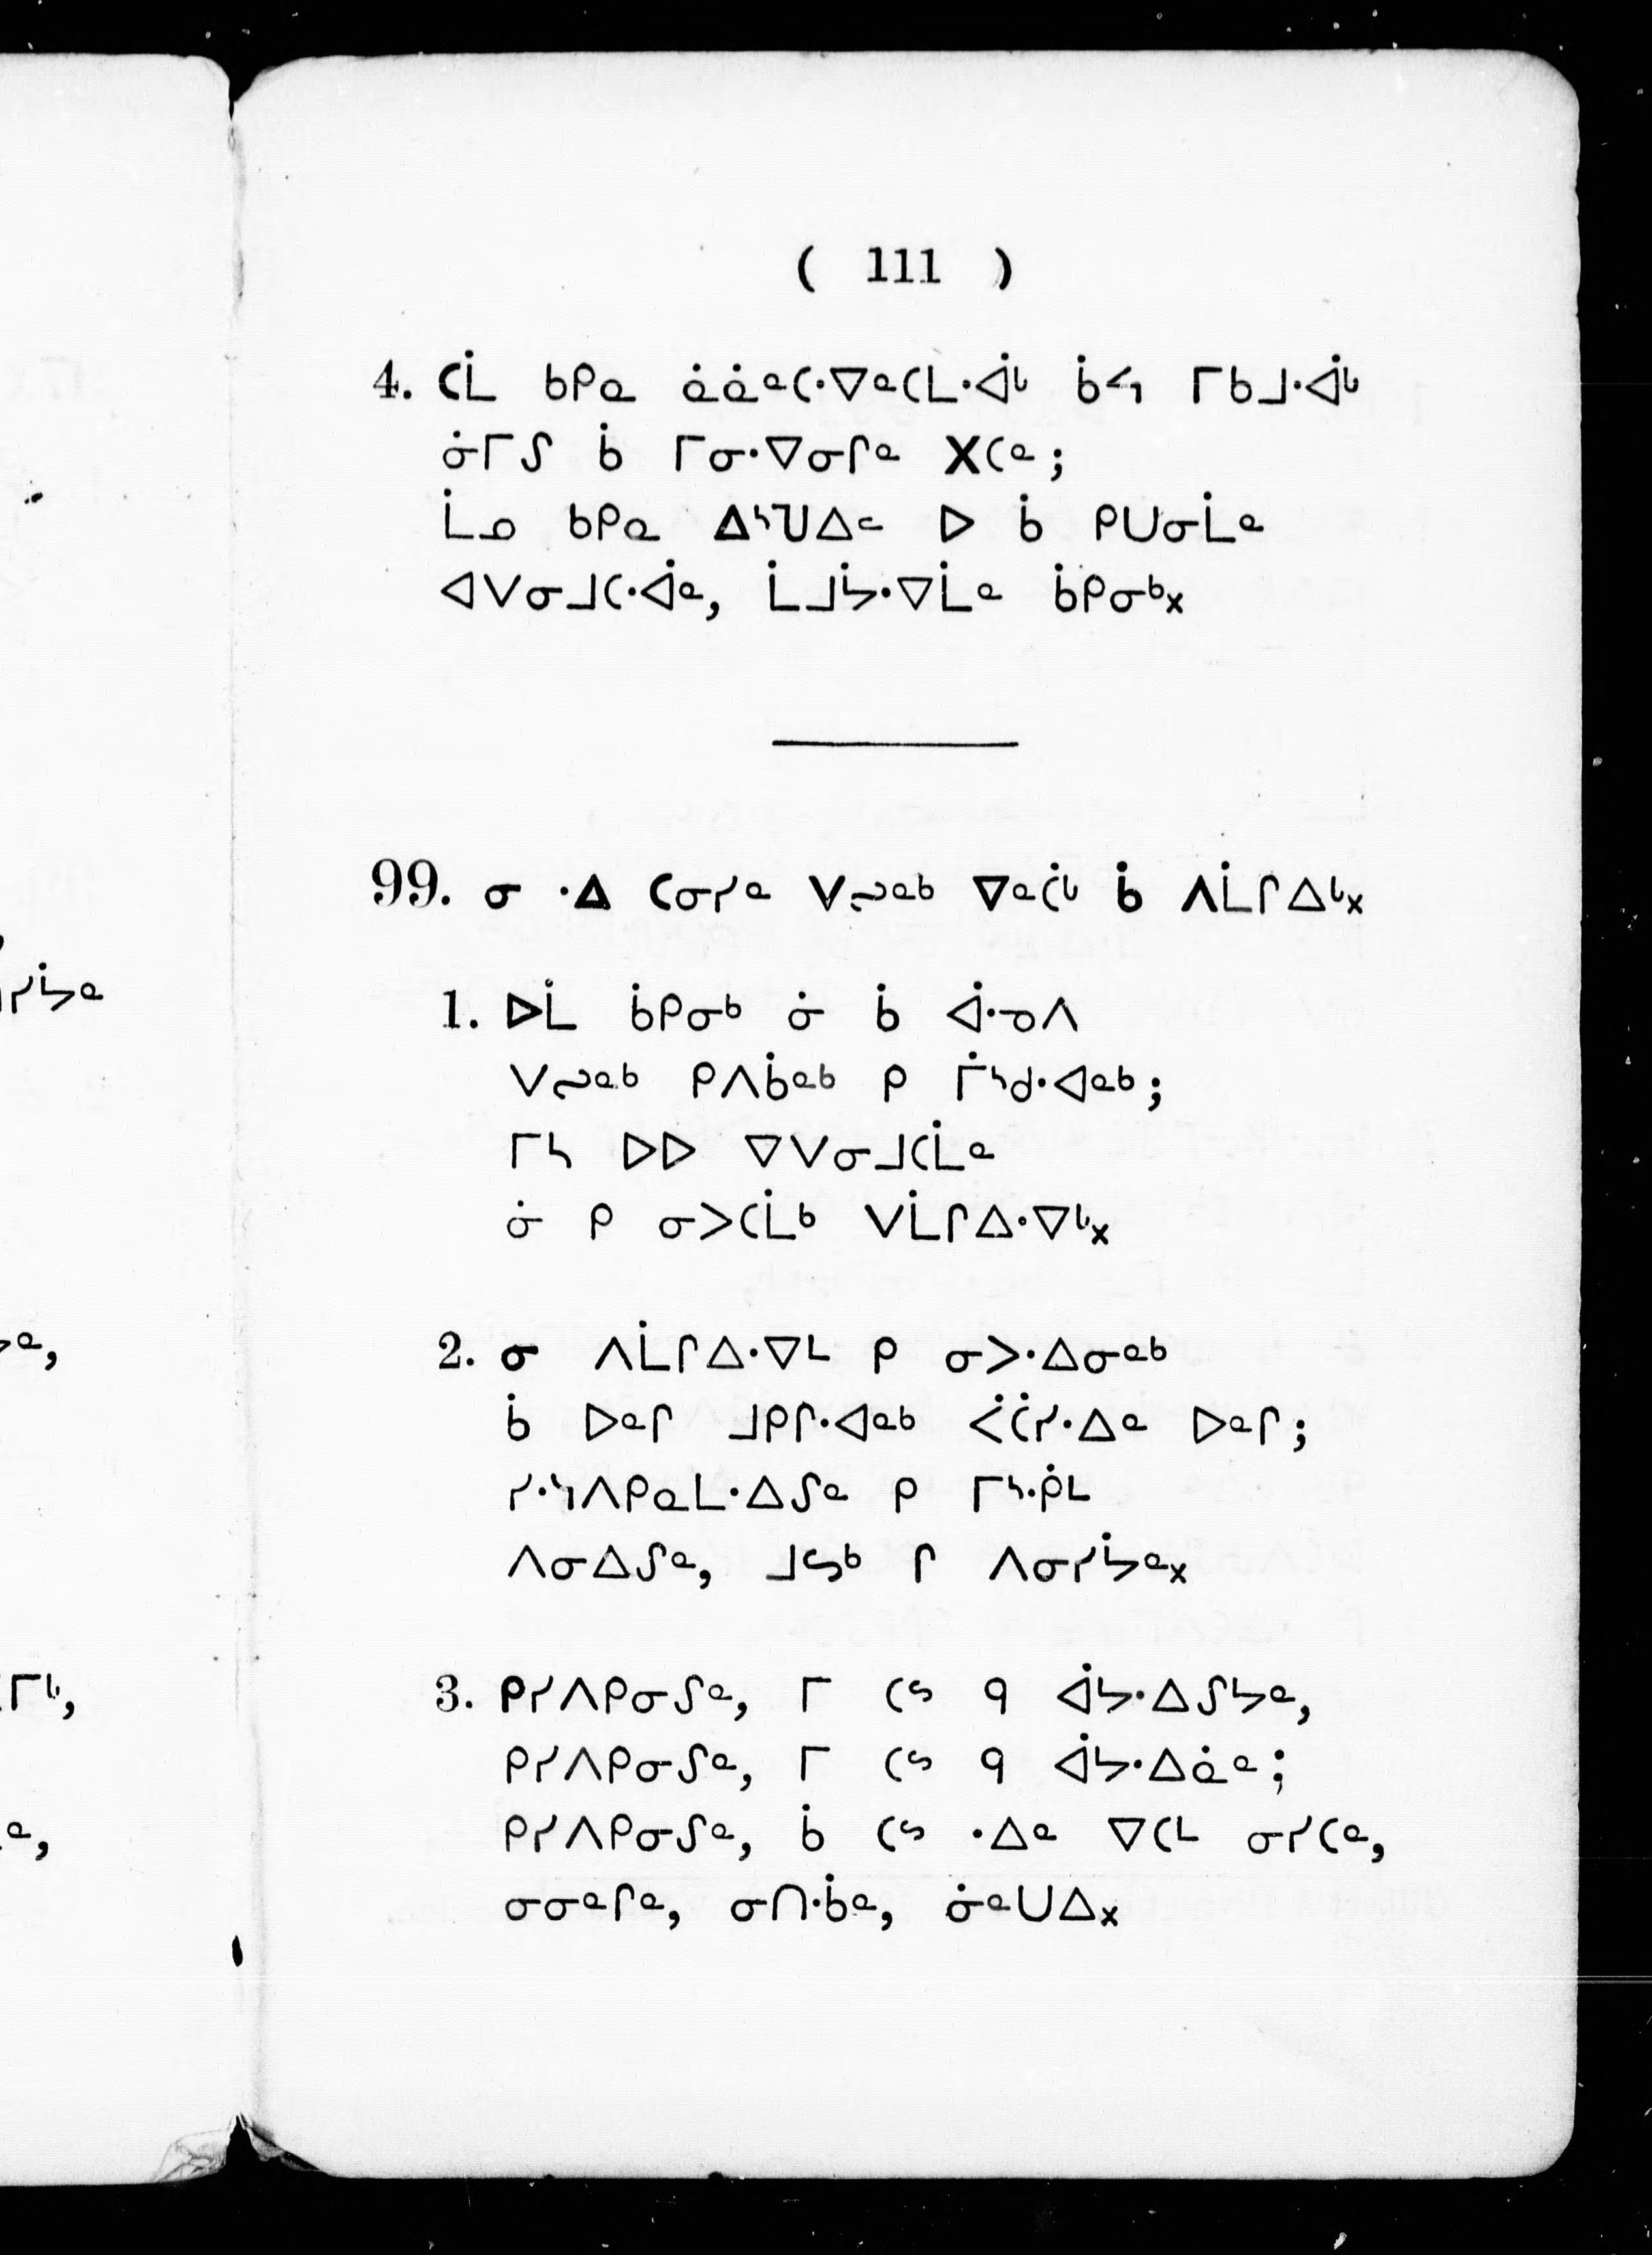 ( 111 )
4. ᑕᒫ ᑲᑭᓇ ᓈᓈᓐᑕᐧᐁᓐᑕᒪᐧᐋᒡ ᑳᐸᓴ ᒥᑲᒧᐧᐋᒡ
ᓃᒥᔑ ᑳ ᒥᓂᐧᐁᓂᒋᓐ ᕽᑕᓐ;
ᒫᓄ ᑲᑭᓇ ᐃᔅᑌᐃᓪ ᐅ ᑳ ᑭᑌᓂᒫᓐ
ᐊᐯᓂᒧᑕᐧᐋᓐ, ᒫᒧᔮᐧᐁᒫᓐ ᑳᑭᓂᒃ᙮
99. ᓂ ᐧᐃ ᑕᓂᓯᓐ ᐯᔓᓐᒃ ᐁᓐᑖᒡ ᑳ ᐱᒫᒋᐃᒡ᙮
1. ᐅᒫ ᑳᑭᓂᒃ ᓃ ᑳ ᐋᐧᓄᐱ
ᐯᔓᓐᒃ ᑭᐱᑳᓐᒃ ᑭ ᒦᔅᑯᐧᐊᓐᒃ;
ᒥᓴ ᐅᐅ ᐁᐯᓂᒧᑕᒫᓐ
ᓃ ᑭ ᓂᐳᑕᒫᒃ ᐯᒫᒋᐃᐧᐁᒡ᙮
2. ᓂ ᐱᒫᒋᐃᐧᐁᒻ ᑭ ᓂᐳᐧᐃᓂᓐᒃ
ᑳ ᐅᓐᒋ ᒧᑭᒋᐧᐊᓐᒃ ᐹᑖᓯᐧᐃᓐ ᐅᓐᒋ;
ᓯᐧᔅᐱᑭᓇᒪᐧᐃᔑᓐ ᑭ ᒥᔅᐧᑮᒻ
ᐱᓂᐃᔑᓐ, ᒧᔕᒃ ᒋ ᐱᓂᓯᔮᓐ᙮
3. ᑭᓯᐱᑭᓂᔑᓐ, ᒥ ᑕᔥ ᑫ ᐋᔭᐧᐃᔑᔭᓐ,
ᑭᓯᐱᑭᓂᔑᓐ, ᒥ ᑕᔥ ᑫ ᐋᔭᐧᐃᓈᓐ;
ᑭᓯᐱᑭᓂᔑᓐ, ᑳ ᑕᔥ ᐧᐃᓐ ᐁᑕᒻ ᓂᓯᑕᓐ,
ᓂᓂᓐᒋᓐ, ᓂᑎᐧᑳᓐ, ᓃᓐᑌᐃ᙮